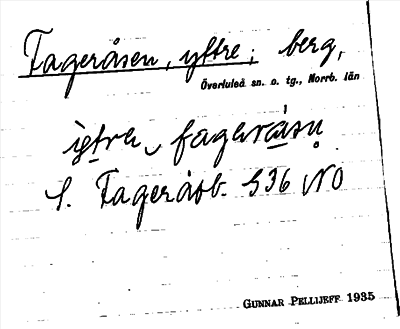 Fageråsen, yttre; berg,
Överluleå sn. o. tg., Norrb. län
fageråsn̥
S. Fageråsb. S36 NO
GUNNAR PELLIJEFF 1935